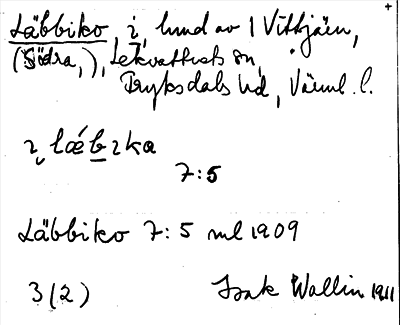 Läbbiko, i, hund av 1 Vittjärn,
(Södra,), Lekvattnets sn,
Fryksdals hd, Värml. l.
ı, lǽbıka
7:5
Läbbiko 7:5 ml 1909
3(2) Isak Wallin 1911